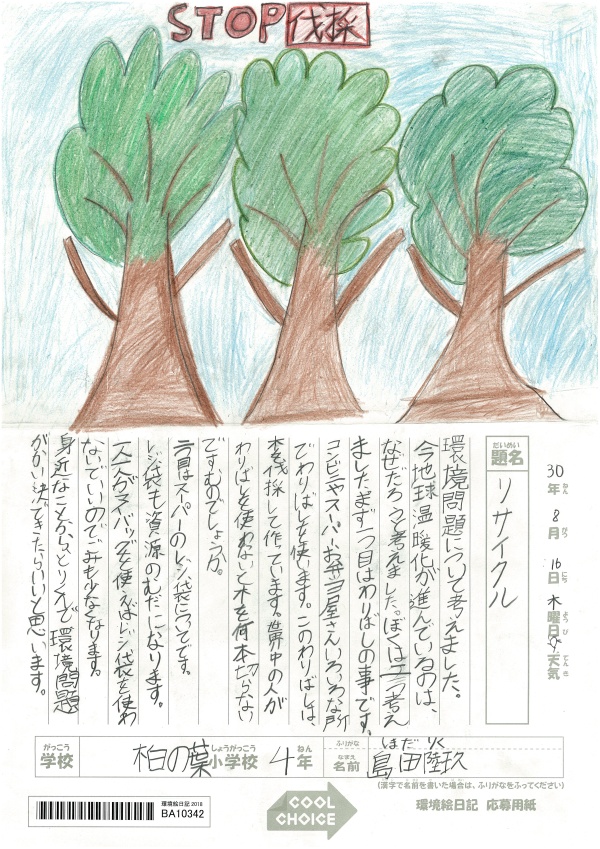 STOP伐採
30年ねん8月がつ16日にち木曜日ようび天気てんき
だいめい
題名
リサイクル
環境問題について考えました。
今地球温暖化が進んでいるのは、
なぜだろうと考えました。ぼくは二つ考え
ましたまず一つ目はわりばしの事です。
コンビニやスーパーお弁当屋さんいろいろな所
でわりばしを使います。このわりばしは、
木を伐採して作ています。世界中の人が
わりばしを使わないと木を何本切らない
ですむのでしょうか。
二つ目はスーパーのレジ袋についてです。
レジ袋も資源のむだになります。
一人一人がマイバッグを使えばレジ袋を使わ
ないでいいのでごみも少なくなります。
身近なことからとりくんで環境問題
がかい決できたらいいと思います。
がっこう しょうがっこう ねん ふりがな しまだ りく
学校 柏の葉小学校 4年 なまえ 名前 島田陸玖
(漢字で名前を書いた場合は、ふりがなをふってください)
環境絵日記 2018
BA10342
COOL
CHOICE
環境絵日記 応募用紙